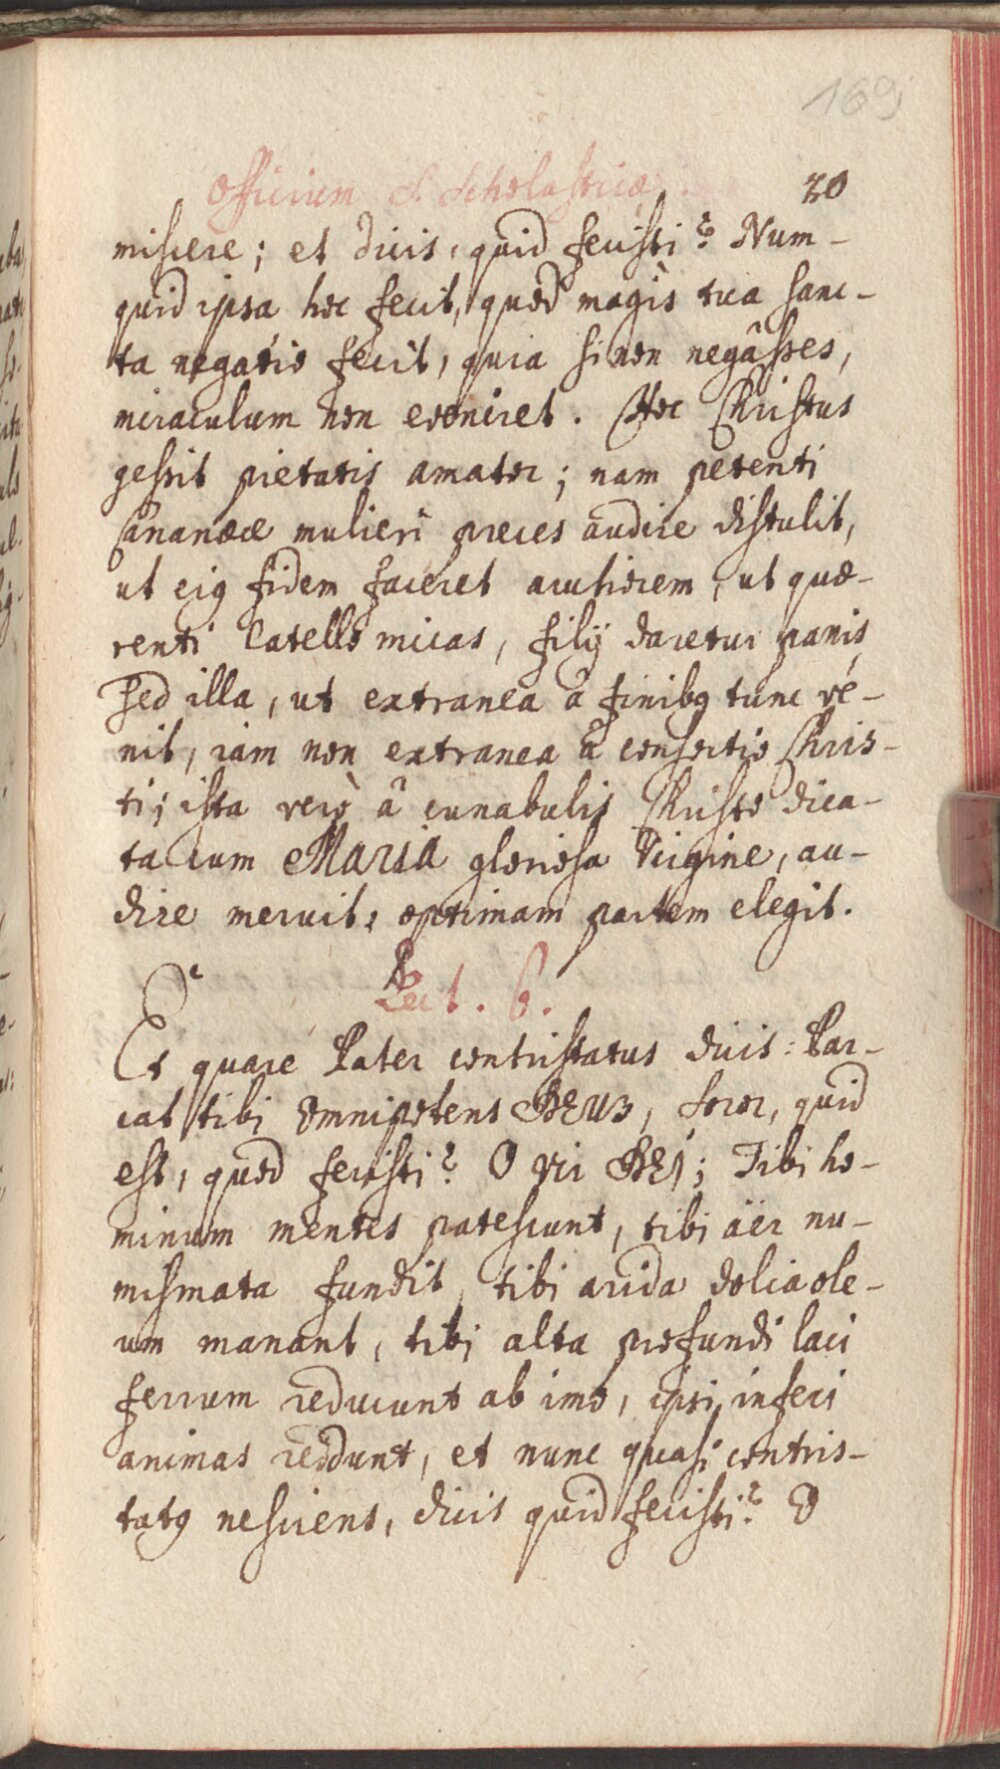 169
Officium S. Scholasticæ. 20
miscere; et dicis, quid fecisti? Num-
quid ipsa hoc fecit, quod magis tua sanc-
ta negatio fecit, quia si non negâsses,
miraculum non eveniret. Hoc Christus
gessit pietatis amator; nam petenti
Cananææ mulieri preces audire distulit,
ut eig fidem faceret acutiorem, ut quæ-
renti Catello micas, filij daretur panis
sed illa, ut extranea â finibg tunc vé-
nit, iam non extranea â consortio Chris-
ti; ista verò â cunabulis Christo dica-
ta cum MARIA gloriosa Virgine, au-
dire meruit: optimam partem elegit.
Lect. 6.
Et quare Pater contristatus dicis: Par-
cat tibi Omnipotens DEUS, soror, quid
est, quod fecisti? O vir DEI; Tibi ho-
minum mentes patescunt, tibi äer nu-
mismata fundit, tibi arida dolia ole-
um manant, tibi alta profundi laci
ferrum reducunt ab imo, ipsi inferi
animas reddunt, et nunc quasi contris-
tatg nesciens, dicis quid fecisti? O